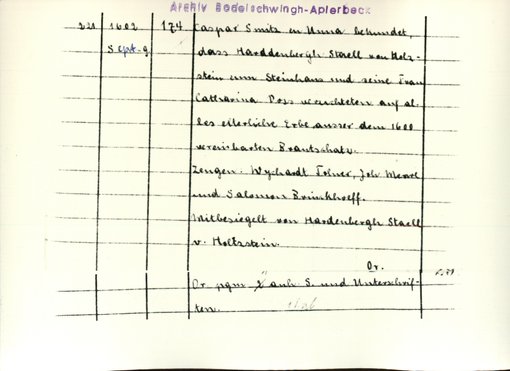 Archiv Bodelschwingh-Aplerbeck
221 1602 174 Caspar Smitz in Unna bekundet,
Sept. 9 dass Harddenbergh Staell von Holz-
stein zum Steinhaus und seine Frau
Catharina Voss verzichteten auf al-
les elterliche Erbe ausser dem 1600
vereinbarten Brautschatz.
Zeugen: Wychardt Joh.
und Salomon Brinckhoeff.
Mitbesiegelt von Hardenbergh Staell
v. Holtzstein.
Or.
Or. pgm. 2 anh. S. und Unterschrif-
ten.